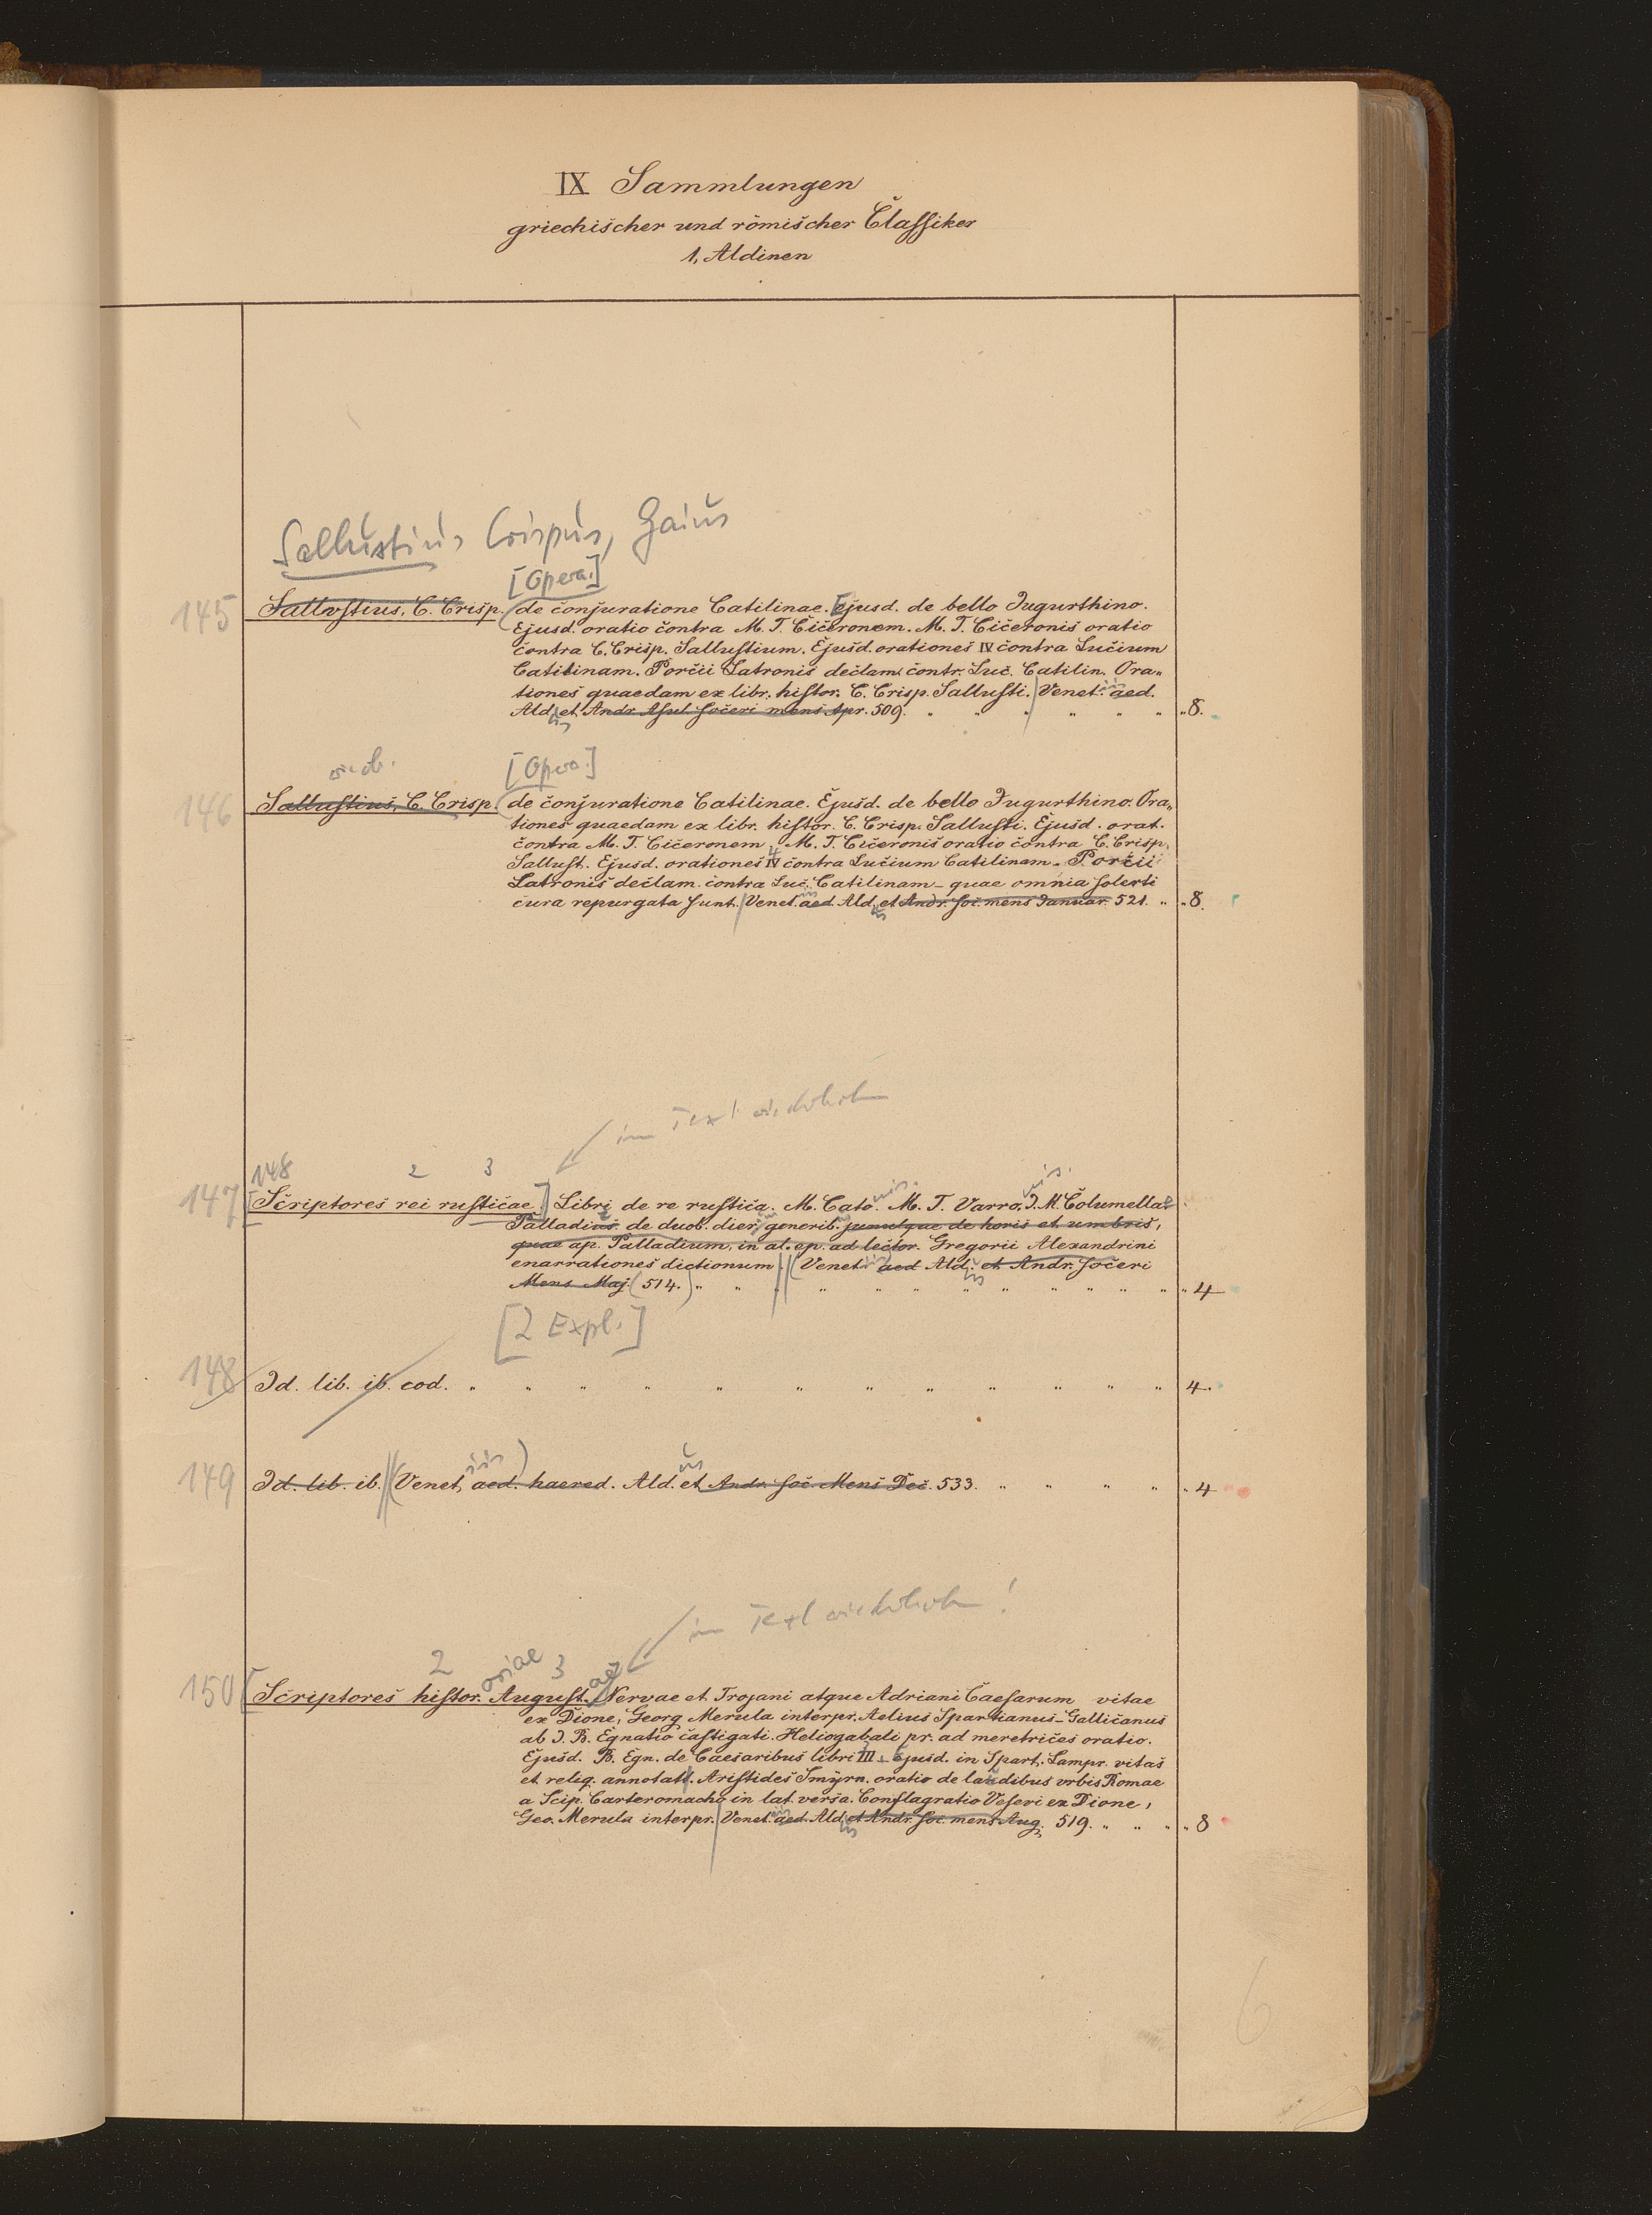 IX Sammlungen
griechischer und römischer Classiker
1, Aldinen
Sallustius Crispus, Gaius
[Opera.]
145 Sallustius, C. Crisp. de conjuratione Catilinae. Ejusd. de bello Jugurthino.
Ejusd. oratio contra M. T. Ciceronem. M. T. Ciceronis oratio
contra C. Crisp. Sallustium. Ejusd. orationes IV contra Lucium
Catilinam. Porcii Latronis declam. contr. Luc. Catilin. Ora„
tiones quaedam ex libr. histor. C. Crisp. Sallusti. Venet. aed.
Ald. et Andr. Asul. soceri mens Apr. 509. „ „ „ „ „ „ „ 8.
[Opera.]
146 Sallustius, C. Crisp. de conjuratione Catilinae. Ejusd. de bello Jugurthino. Ora„
tiones quaedam ex libr. histor. C. Crisp. Sallusti. Ejusd. orat.
contra M. T. Ciceronem. M. T. Ciceronis oratio contra C. Crisp.
4
Sallust. Ejusd. orationes IV contra Lucium Catilinam. Porcii
Latronis declam. contra Luc. Catilinam – quae omnia solerti
cura repurgata sunt. Venet. aed. Ald. et Andr. soc. mens Januar. 521. „ „ 8.
im Text wiederholen
148 2 3
147 [Scriptores rei rusticae.] Libri de re rustica. M. Cato. M. T. Varro. J. M. Columella.
Palladius. de duob. dier. generib. simulque de horis et umbris,
quae ap. Palladium, in al. ep. ad lector. Gregorii Alexandrini
enarrationes dictionum (Venet. aed. Ald. et Andr. soceri
Mens Maj. (514.) „ „ „ „ „ „ „ „ „ „ „ „ „ 4
[2 Expl.]
148 Id. lib. ib. eod. „ „ „ „ „ „ „ „ „ „ „ „ 4.
149 Id. lib. ib. (Venet, aed. haered. Ald. et Andr. soc. Mens Dec. 533. „ „ „ „ „ 4
im Text wiederholen!
2 oriae 3 ae
150 [Scriptores histor. August. Nervae et Trojani atque Adriani Caesarum vitae
ex Dione, Georg Merula interpr. Aelius Spartianus – Gallicanus
ab J. B. Egnatio castigati. Heliogabali pr. ad meretrices oratio.
Ejusd. B. Egn. de Caesaribus libri III. Ejusd. in Spart. Lampr. vitas
et reliq. annotatt. Aristides Smyrn. oratio de laudibus urbis Romae
a Scip. Carteromacho in lat. versa. Conflagratio Vesevi ex Dione,
Geo. Merula interpr. Venet. aed. Ald. et Andr. soc. mens Aug. 519. „ „ „ „ 8
6